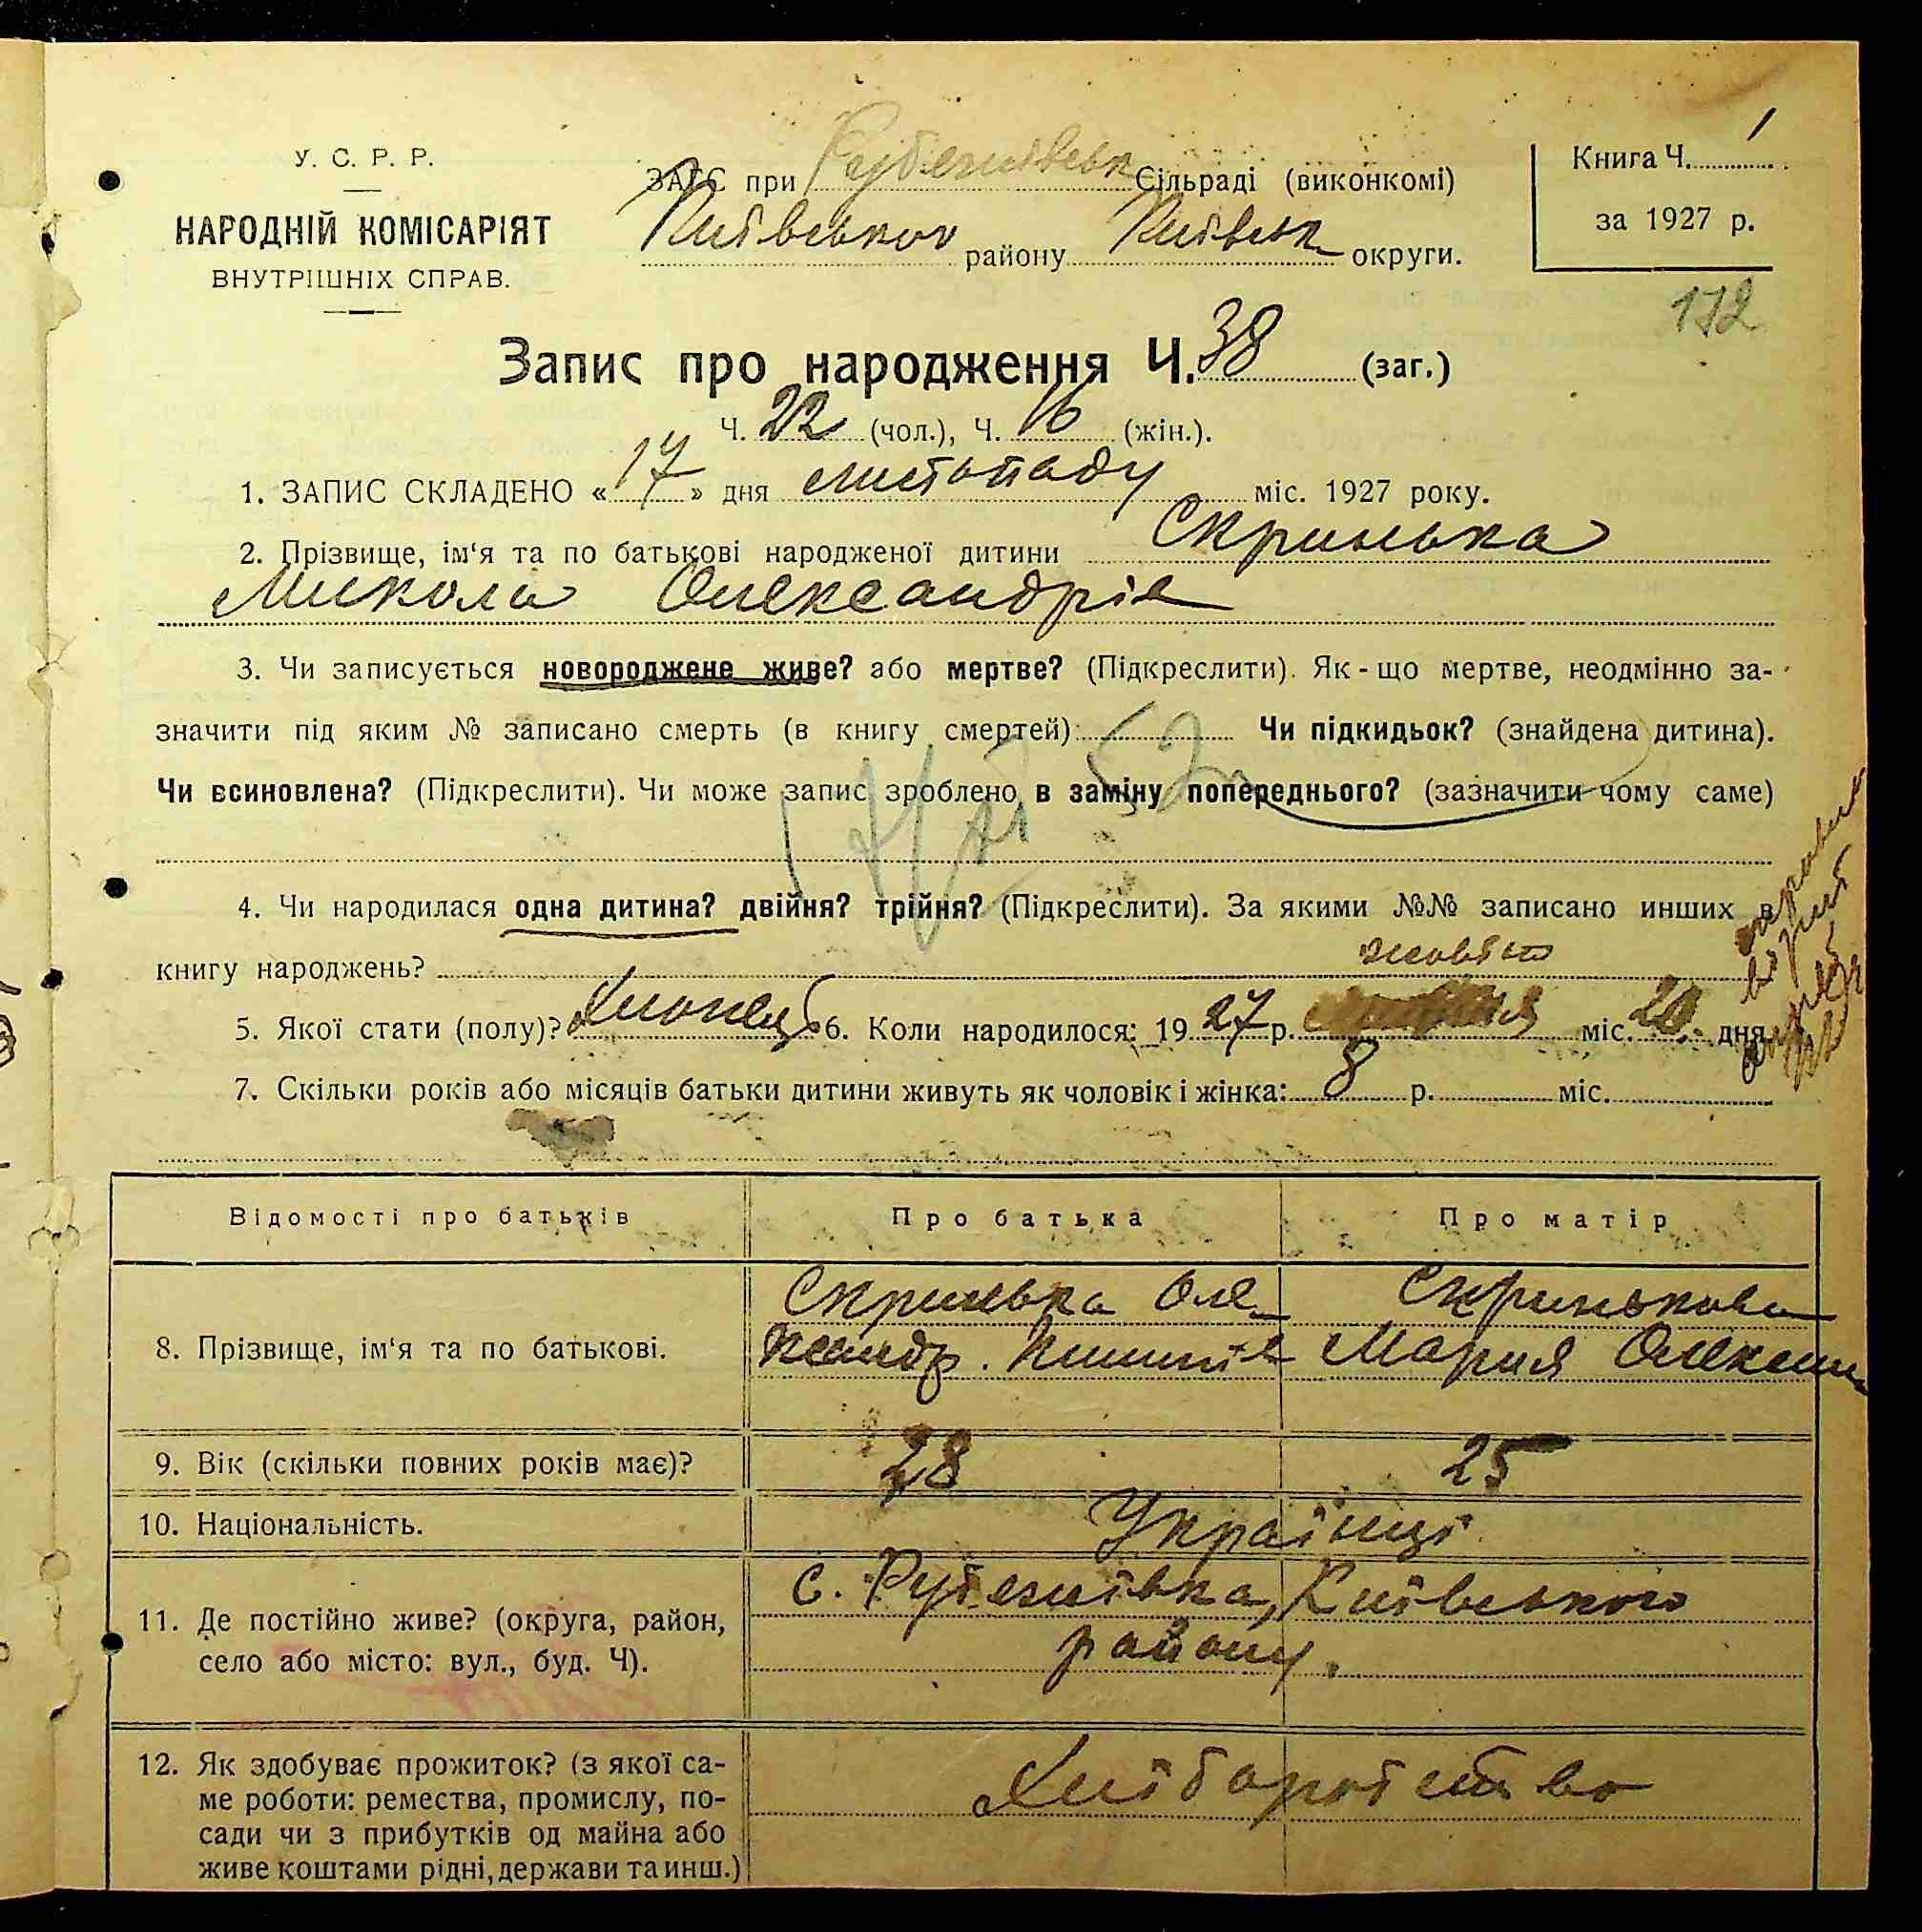 У. С. Р. Р.
НАРОДНІЙ КОМІСАРІЯТ
ВНУТРІШНІХ СПРАВ.
ЗАГС при Рубежівськ Сільраді (виконкомі)
Київського району Київськ округи.
Книга Ч. 1
за 1927 р.
172
Запис про народження Ч. 38 (заг.)
Ч. 22 (чол.), Ч. 16 (жін.).
1. ЗАПИС СКЛАДЕНО « 17 » дня листопаду міс. 1927 року.
2. Прізвище, ім‘я та по батькові народженої дитини Скринька
Микола Олександрів
3. Чи записується новороджене живе? або мертве? (Підкреслити). Як-що мертве, неодмінно за-
значити під яким № записано смерть (в книгу смертей) Чи підкидьок? (знайдена дитина).
Чи всиновлена? (Підкреслити). Чи може запис зроблено в заміну попереднього? (зазначити чому саме)
4. Чи народилася одна дитина? двійня? трійня? (Підкреслити). За якими №№ записано инших в
книгу народжень?
жовтн
5. Якої стати (полу)? Хлопець 6. Коли народилося: 19 27 р. міс. 20 дня
7. Скільки років або місяців батьки дитини живуть як чоловік і жінка: 8 р. міс.
Відомості про батьків Про батька Про матір
8. Прізвище, ім‘я та по батькові.
Скринька Оле- Скринькова
ксандр. Мария
9. Вік (скільки повних років має)? 28 25
10. Національність. Українці
11. Де постійно живе? (округа, район,
село або місто: вул., буд. Ч).
с. Рубежівка, Київського
району.
12. Як здобуває прожиток? (з якої са-
ме роботи: ремества, промислу, по-
сади чи з прибутків од майна або
живе коштами рідні, держави та инш.)
Хліборобство